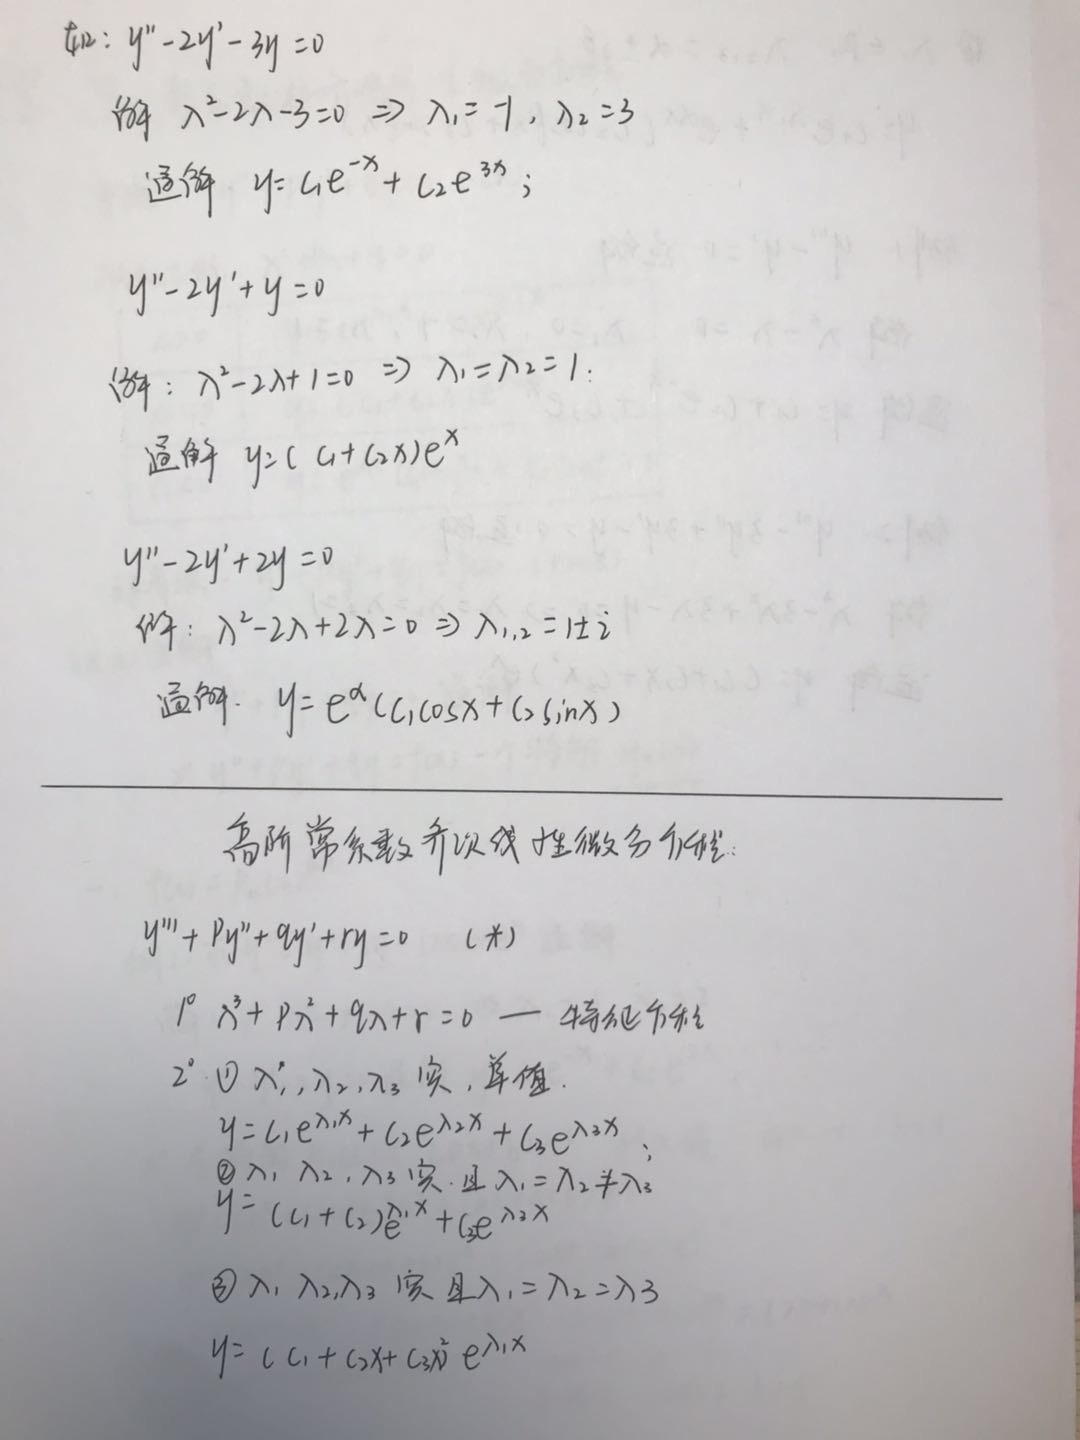 如: y''-2y'-3y=0
解 λ²-2λ-3=0 => λ₁=-1, λ₂=3
通解 y=C₁e^{-x}+C₂e^{3x};
y''-2y'+y=0
解: λ²-2λ+1=0 => λ₁=λ₂=1:
通解 y=(C₁+C₂x)e^x
y''-2y'+2y=0
解: λ²-2λ+2λ=0 => λ₁,₂=1±i
通解. y=e^α(C₁cosx+C₂sinx)
高阶常系数齐次线性微分方程:
y'''+Py''+qy'+ry=0 (*)
1° λ³+Pλ²+qλ+r=0 — 特征方程
2° ① λ₁, λ₂, λ₃ 实, 单值.
y=C₁e^{λ₁x}+C₂e^{λ₂x}+C₃e^{λ₃x};
② λ₁ λ₂, λ₃ 实. 且 λ₁=λ₂≠λ₃
y=(C₁+C₂)e^{λ₁x}+C₃e^{λ₃x}
③ λ₁ λ₂, λ₃ 实 且 λ₁=λ₂=λ3
y=(C₁+C₂x+C₃x² e^{λ₁x}